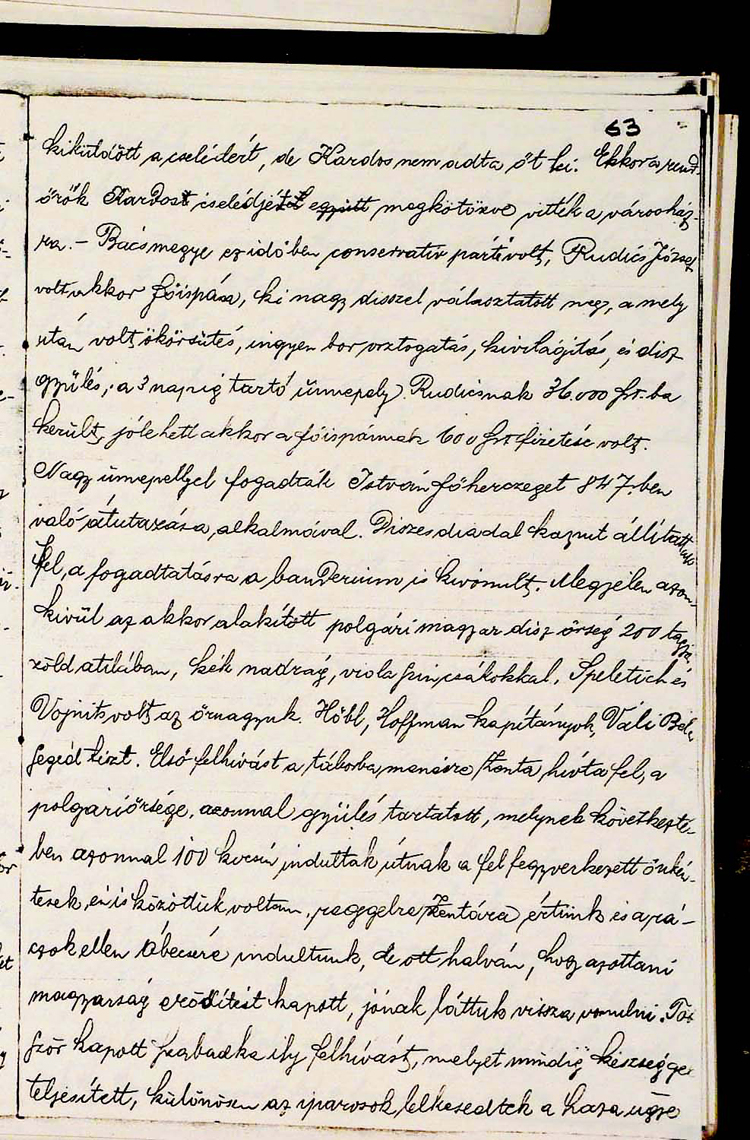 63
kiküldött a cselédért, de Kardos nem adta őt ki. Ekkor a rend-
őrök Kardost, cselédjét együtt megkötözve vitték a városház-
ra. – Bácsmegye ez időben conservativ párti volt, Rudics József
volt akkor főispán, ki nagy diszszel választatott meg, a mely
után volt ökörsütés, ingyen bor osztogatás, kivilágitás, és disz
gyülés, a 3 napig tartó ünnepely Rudicsnak 36.000 frt.-ba
került, jólehett akkor a főispánnak 600 frt fizetése volt.
Nagy ünnepellyel fogadták István főherczeget 847.-ben
való átutazása, alkalmával. Diszes diadal kaput állitottak
fel, a fogadtatásra a banderium is kivonult. Megjelen azon-
kivül az akkor alakított polgári magyar disz őrség 200 tagja,
zöld atilában, kék nadrág, viola szin csákokkal, Speletich és
Vojnits volt az őrnagyuk. Höbl, Hoffman kapitányok, Váli Béla
segéd tiszt. Első felhivást a táborba, menésre Zenta, hivta fel, a
polgári őrsége, azonnal gyülés tartatott, melynek következté-
ben azonnal 100 kocsin indultak útnak a fel fegyverkezett önkén-
tesek, én is közöttük voltam, reggelre Zentára értünk és a rá-
czok ellen Óbecsére indultunk, de ott halván, hogy azottani
magyarság erősítést kapott, jónak láttuk vissza vonulni. Több-
ször kapott Szabadka ily felhívást, melyet mindig készséggel
teljesített, különösen az iparosok lelkesedtek a haza ügye